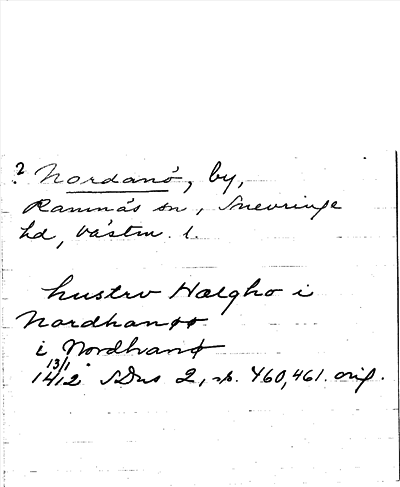 ? Nordanö, by,
Ramnäs sn, Snevringe
hd, Västm. l.
hustrv Hælgho i
Nordhanøø
i Nordhanø
13/1
1412 SDns 2, s. 460, 461. orig.